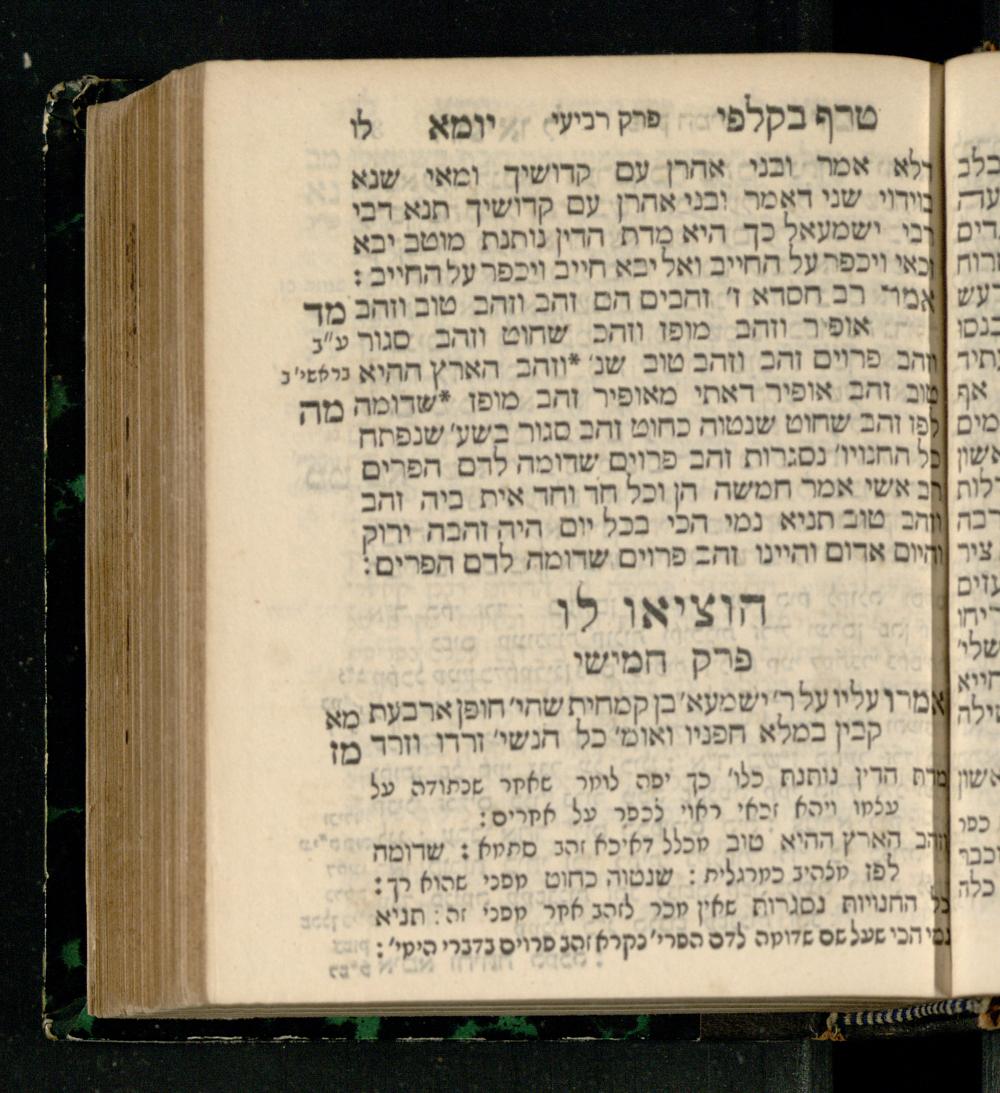 טרף בקלפי פרק רביעי יומא לו
דלא אמר ובני אהרן עם קדושיך ומאי שנא
בוידוי שני דאמר ובני אהרן עם קדושיך תנא דבי
רבי ישמעאל כך היא מדת הדין נותנת מוטב יבא
זכאי ויכפר על החייב ואל יבא חייב ויכפר על החייב :
אמר רב חסדא ז׳ זהבים הם זהב וזהב טוב וזהב מד
אופיר וזהב מופז וזהב שחוט וזהב סגור ע״ב
וזהב פרוים זהב וזהב טוב שנ׳ *וזהב הארץ ההיא בראשי׳ ב
טוב זהב אופיר דאתי מאופיר זהב מופז *שדומה מה
לפז זהב שחוט שנטוה כחוט זהב סגור בשע׳ שנפתח
כל החנויו׳ נסגרות זהב פרוים שדומה לדם הפרים
רב אשי אמר חמשה הן וכל חד וחד אית ביה זהב
וזהב טוב תניא נמי הכי בכל יום היה זהבה ירוק
והיום אדום והיינו זהב פרוים שדומה לדם הפרים :
הוציאו לו
פרק חמישי
אמרו עליו על ר׳ ישמעא׳ בן קמחית שהי׳ חופן ארבעת מא
קבין במלא חפניו ואומ׳ כל הנשי׳ זרדו וזרד מז
מדת הדין נותנת כלו׳ כך יפה לומר שאחר שנתודה על
עצמו ויהא זכאי ראוי לכפר על אחרים :
וזהב הארץ ההיא טוב מכלל דאיכא זהב סתמא : שדומה
לפז מלהיב כמרגלית : שנטוה כחוט מפני שהוא רך :
כל החנויות נסגרות שאין מכר לזהב אחר מפני זה : תניא
נמי הכי שעל שם שדומה לדם הפרי׳ נקרא זהב פרוים בדברי הימי׳ :